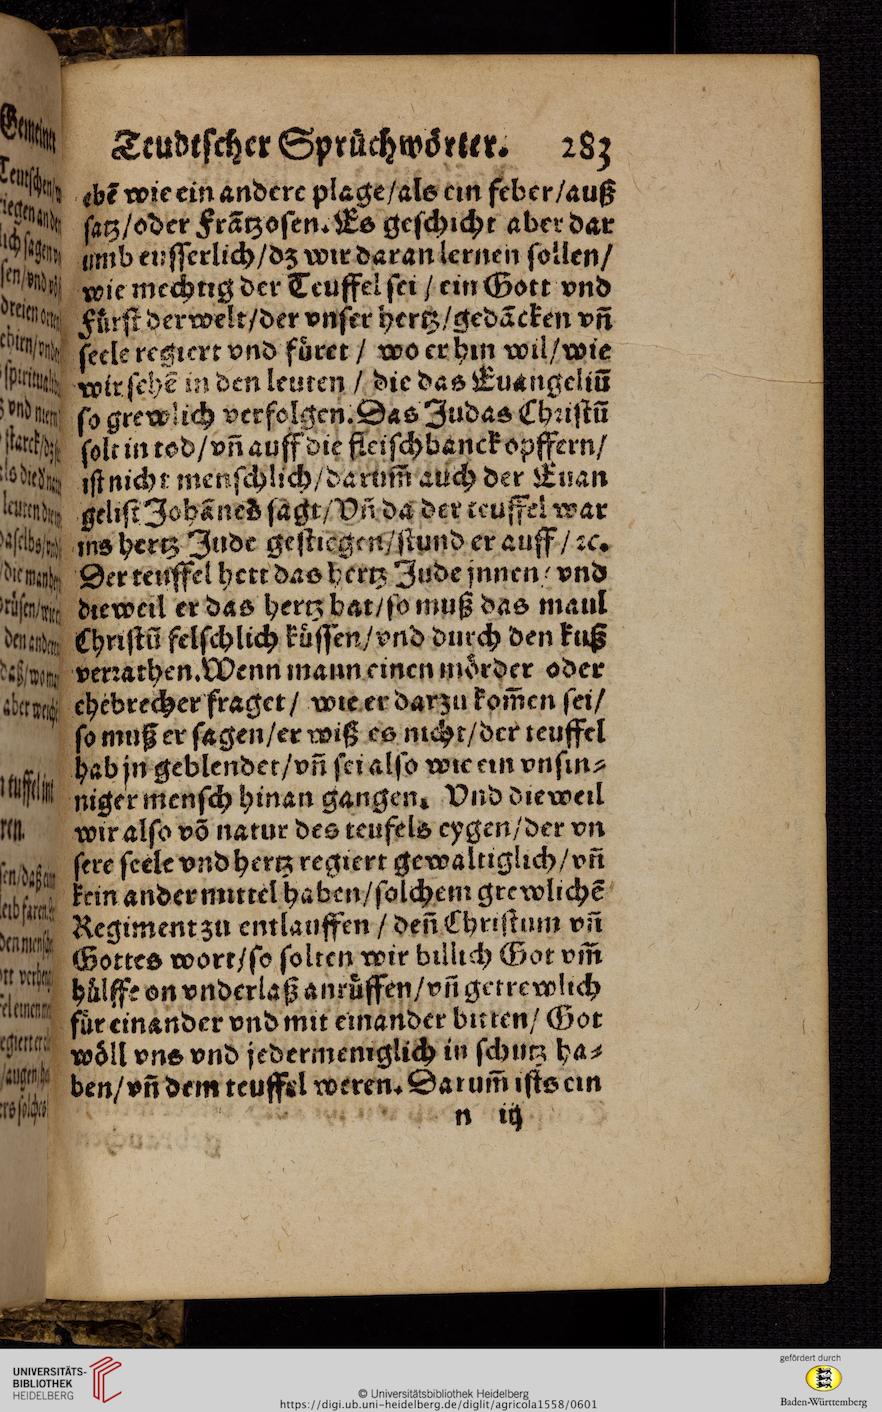 Teudtscher Sprüchwörter. 283
ebē wie ein andere plage/als ein feber/auß
satz/oder Frātzosen. Es geschicht aber dar
umb eusserlich/dz wir daran lernen sollen/
wie mechtig der Teuffel sei / ein Gott vnd
Fürst der welt/der vnser hertz/gedācken vñ
seele regiert vnd füret / wo er hin wil/wie
wir sehē in den leuten / die das Euangeliū
so grewlich verfolgen. Das Judas Christū
solt in tod/vñ auff die fleischbanck opffern/
ist nicht menschlich/darum̄ auch der Euan
gelist Johānes sagt/Vñ da der teuffel war
ins hertz Jude gestiegen/stund er auff / ꝛc.
Der teuffel hett das hertz Jude jnnen/ vnd
dieweil er das hertz hat/so muß das maul
Christū felschlich küssen/vnd durch den kuß
verrathen. Wenn mann einen mörder oder
ehebrecher fraget / wie er darzu kom̄en sei/
so muß er sagen/er wiß es nicht/der teuffel
hab jn geblendet/vñ sei also wie ein vnsin⸗
niger mensch hinan gangen. Vnd dieweil
wir also vō natur des teufels eygen/der vn
sere seele vnd hertz regiert gewaltiglich/vñ
kein ander mittel haben/solchem grewlichē
Regiment zu entlauffen / deñ Christum vñ
Gottes wort/so solten wir billich Got vm̄
hülffe on vnderlaß anrüffen/vñ getrewlich
für einander vnd mit einander bitten/ Got
wöll vns vnd jedermeniglich in schutz ha⸗
ben/vñ dem teuffel weren. Darum̄ ists ein
n iij
UNIVERSITÄTS-
BIBLIOTHEK
HEIDELBERG
© Universitätsbibliothek Heidelberg
https://digi.ub.uni-heidelberg.de/diglit/agricola1558/0601
gefördert durch
Baden-Württemberg